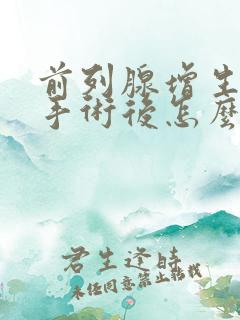 前列腺增生
手術後怎麼
君生逢時
未经同意禁止转载